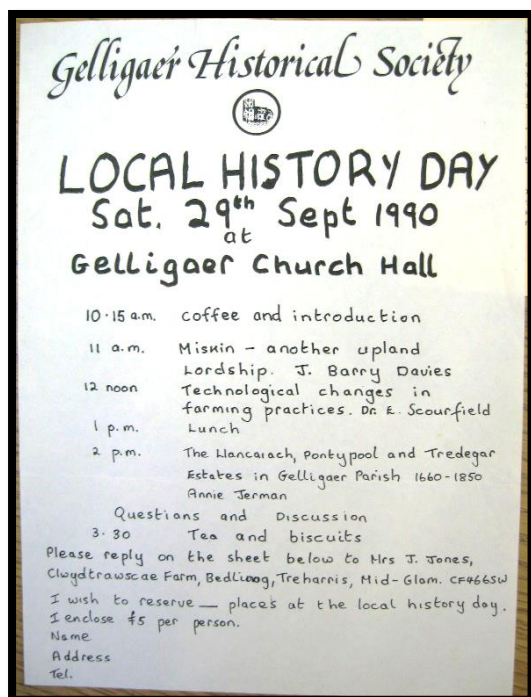 Gelligaer Historical Society
LOCAL HISTORY DAY
Sat. 29th Sept 1990
at
Gelligaer Church Hall
10.15 a.m. coffee and introduction
11 a.m. Miskin - another upland
Lordship. J. Barry Davies
12 noon Technological changes in
farming practices. Dr. E. Scourfield
1 p.m. Lunch
2 p.m. The Llancaiach, Pontypool and Tredegar
Estates in Gelligaer Parish 1660-1850
Annie Jerman
Questions and Discussion
3.30 Tea and biscuits
Please reply on the sheet below to Mrs J. Jones,
Clwydtrawscae Farm, Bedlinog, Treharris, Mid-Glam. CF466SW
I wish to reserve __ places at the local history day.
I enclose £5 per person.
Name
Address
Tel.